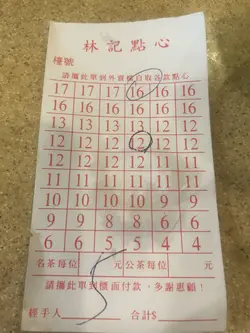 林記點心
檯號
請攜此單到外賣檔自取各款點心
17 17 17 16 16 16
16 16 16 16 16 16
13 13 13 13 12 12
12 12 12 12 12 12
12 12 12 12 11 11
11 11 11 11 11 11
10 10 10 9 9 9
9 8 8 8 8 8
6 6 6 5 4 4
名茶每位 元 公茶每位 元
5
請攜此單到櫃面付款,多謝惠顧!
經手人 合計$